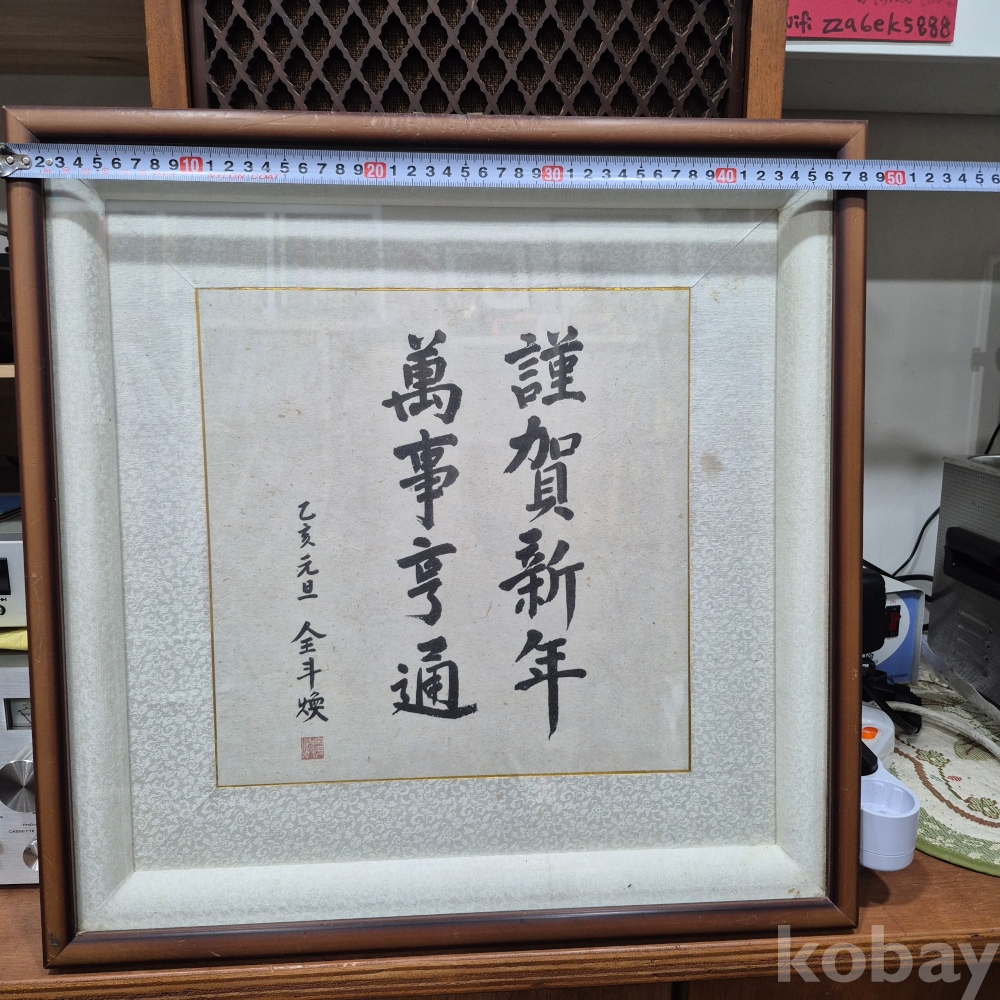 wifi zza6ek5888
2 3 4 5 6 7 8 9 10 1 2 3 4 5 6 7 8 9 20 1 2 3 4 5 6 7 8 9 30 1 2 3 4 5 6 7 8 9 40 1 2 3 4 5 6 7 8 9 50 1 2 3 4 5 6
謹賀新年
萬事亨通
乙亥元旦 全斗煥
CASSETTE
kobay